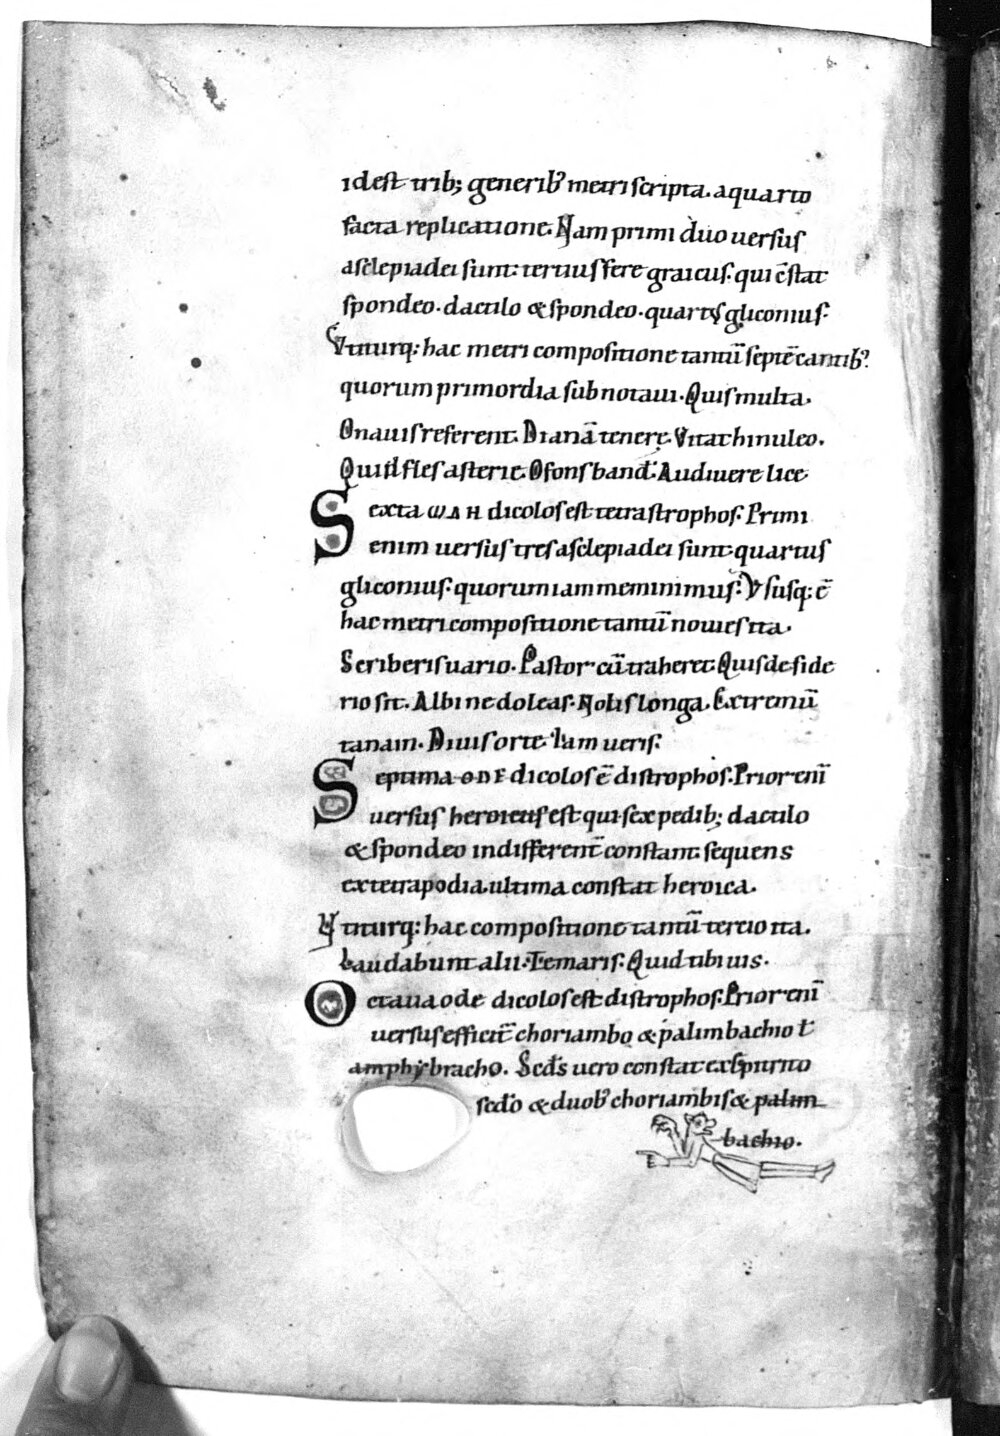 idest trib; generib᾽ metri scripta. a quarto
facta replicatione. Nam primi duo uersus
asclepiadei sunt: tertius fere graicus. qui c̄stat
spondeo. dactilo & spondeo. quartꝰ gliconius.
Vtiturq: hac metri compositione tantū septē cantib᾽
quorum primordia subnotaui. Quis multa.
O nauis referent. Dianā tenerę. Vitat hinuleo.
Quid fles asterie. O fons band᾽. Audiuere lice
Sexta ωΔH dicolos est tetrastrophos. Primi
enim uersus tres asclepiadei sunt quartus
gliconius. quorum iam meminimus. Vsusq: ē
hac metri compositione tantū nouies ita.
Scriberis uario. Pastor cū traheret. Quis deside
rio sit. Albi ne doleas. Nolis longa. Extremū
tanain. Diuis orte. Iam ueris.
Septima ODE dicolos ē distrophos. Prior eni᷑
uersus heroicus est qui sex pedib; dactilo
& spondeo indifferent̄ constant. sequens
ex tetrapodia ultima constat heroica.
Vtiturq: hac compositione tantū tercio ita.
Laudabunt alii. Te maris. Quid tibi uis.
Octaua ode dicolos est distrophos. Prior eni᷑
uersus efficit̄ choriambo & palimbachio ł
amphybracho. Scds uero constat ex epitrito
scdo & duob᾽ choriambis & palim
bachio.